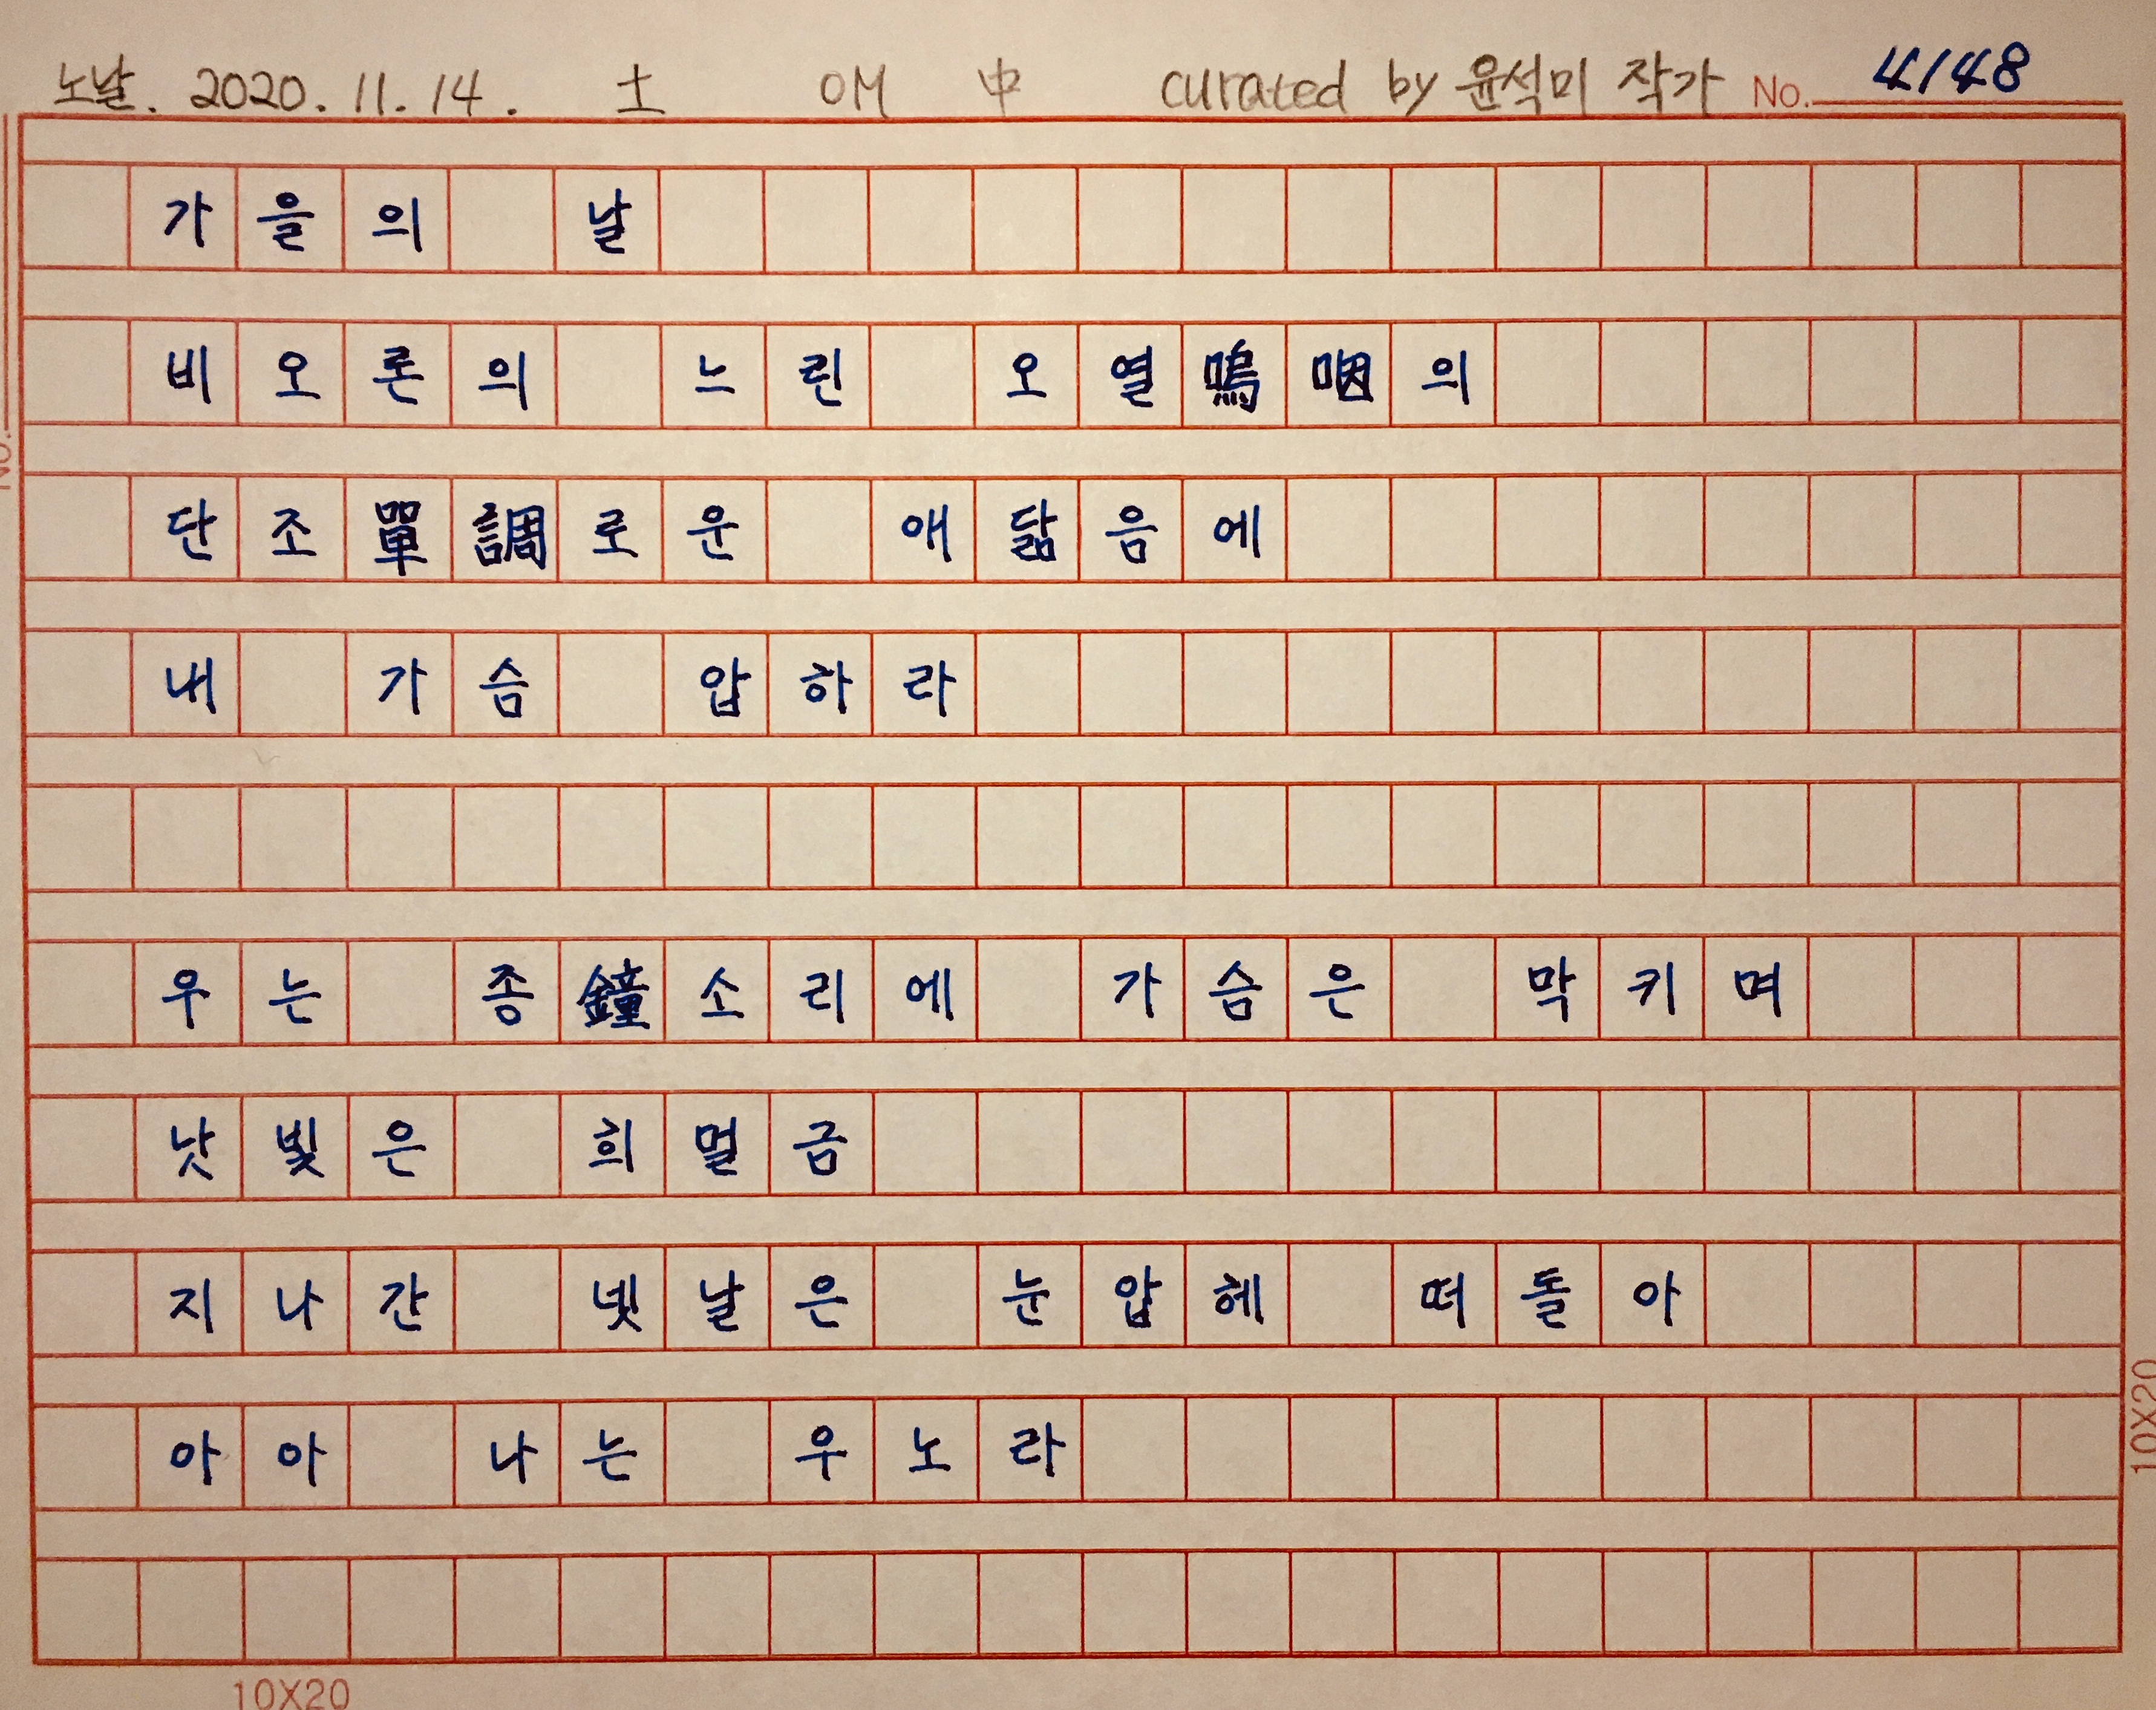 노날. 2020. 11. 14. 土 OM 中 curated by 윤석미 작가 No. 4148
가을의 날
비오론의 느린 오열嗚咽의
단조單調로운 애닮음에
내 가슴 압하라
우는 종鐘소리에 가슴은 막키며
낫빛은 희멀금
지나간 녯날은 눈압헤 떠돌아
아아 나는 우노라
No.
10X20
10X20